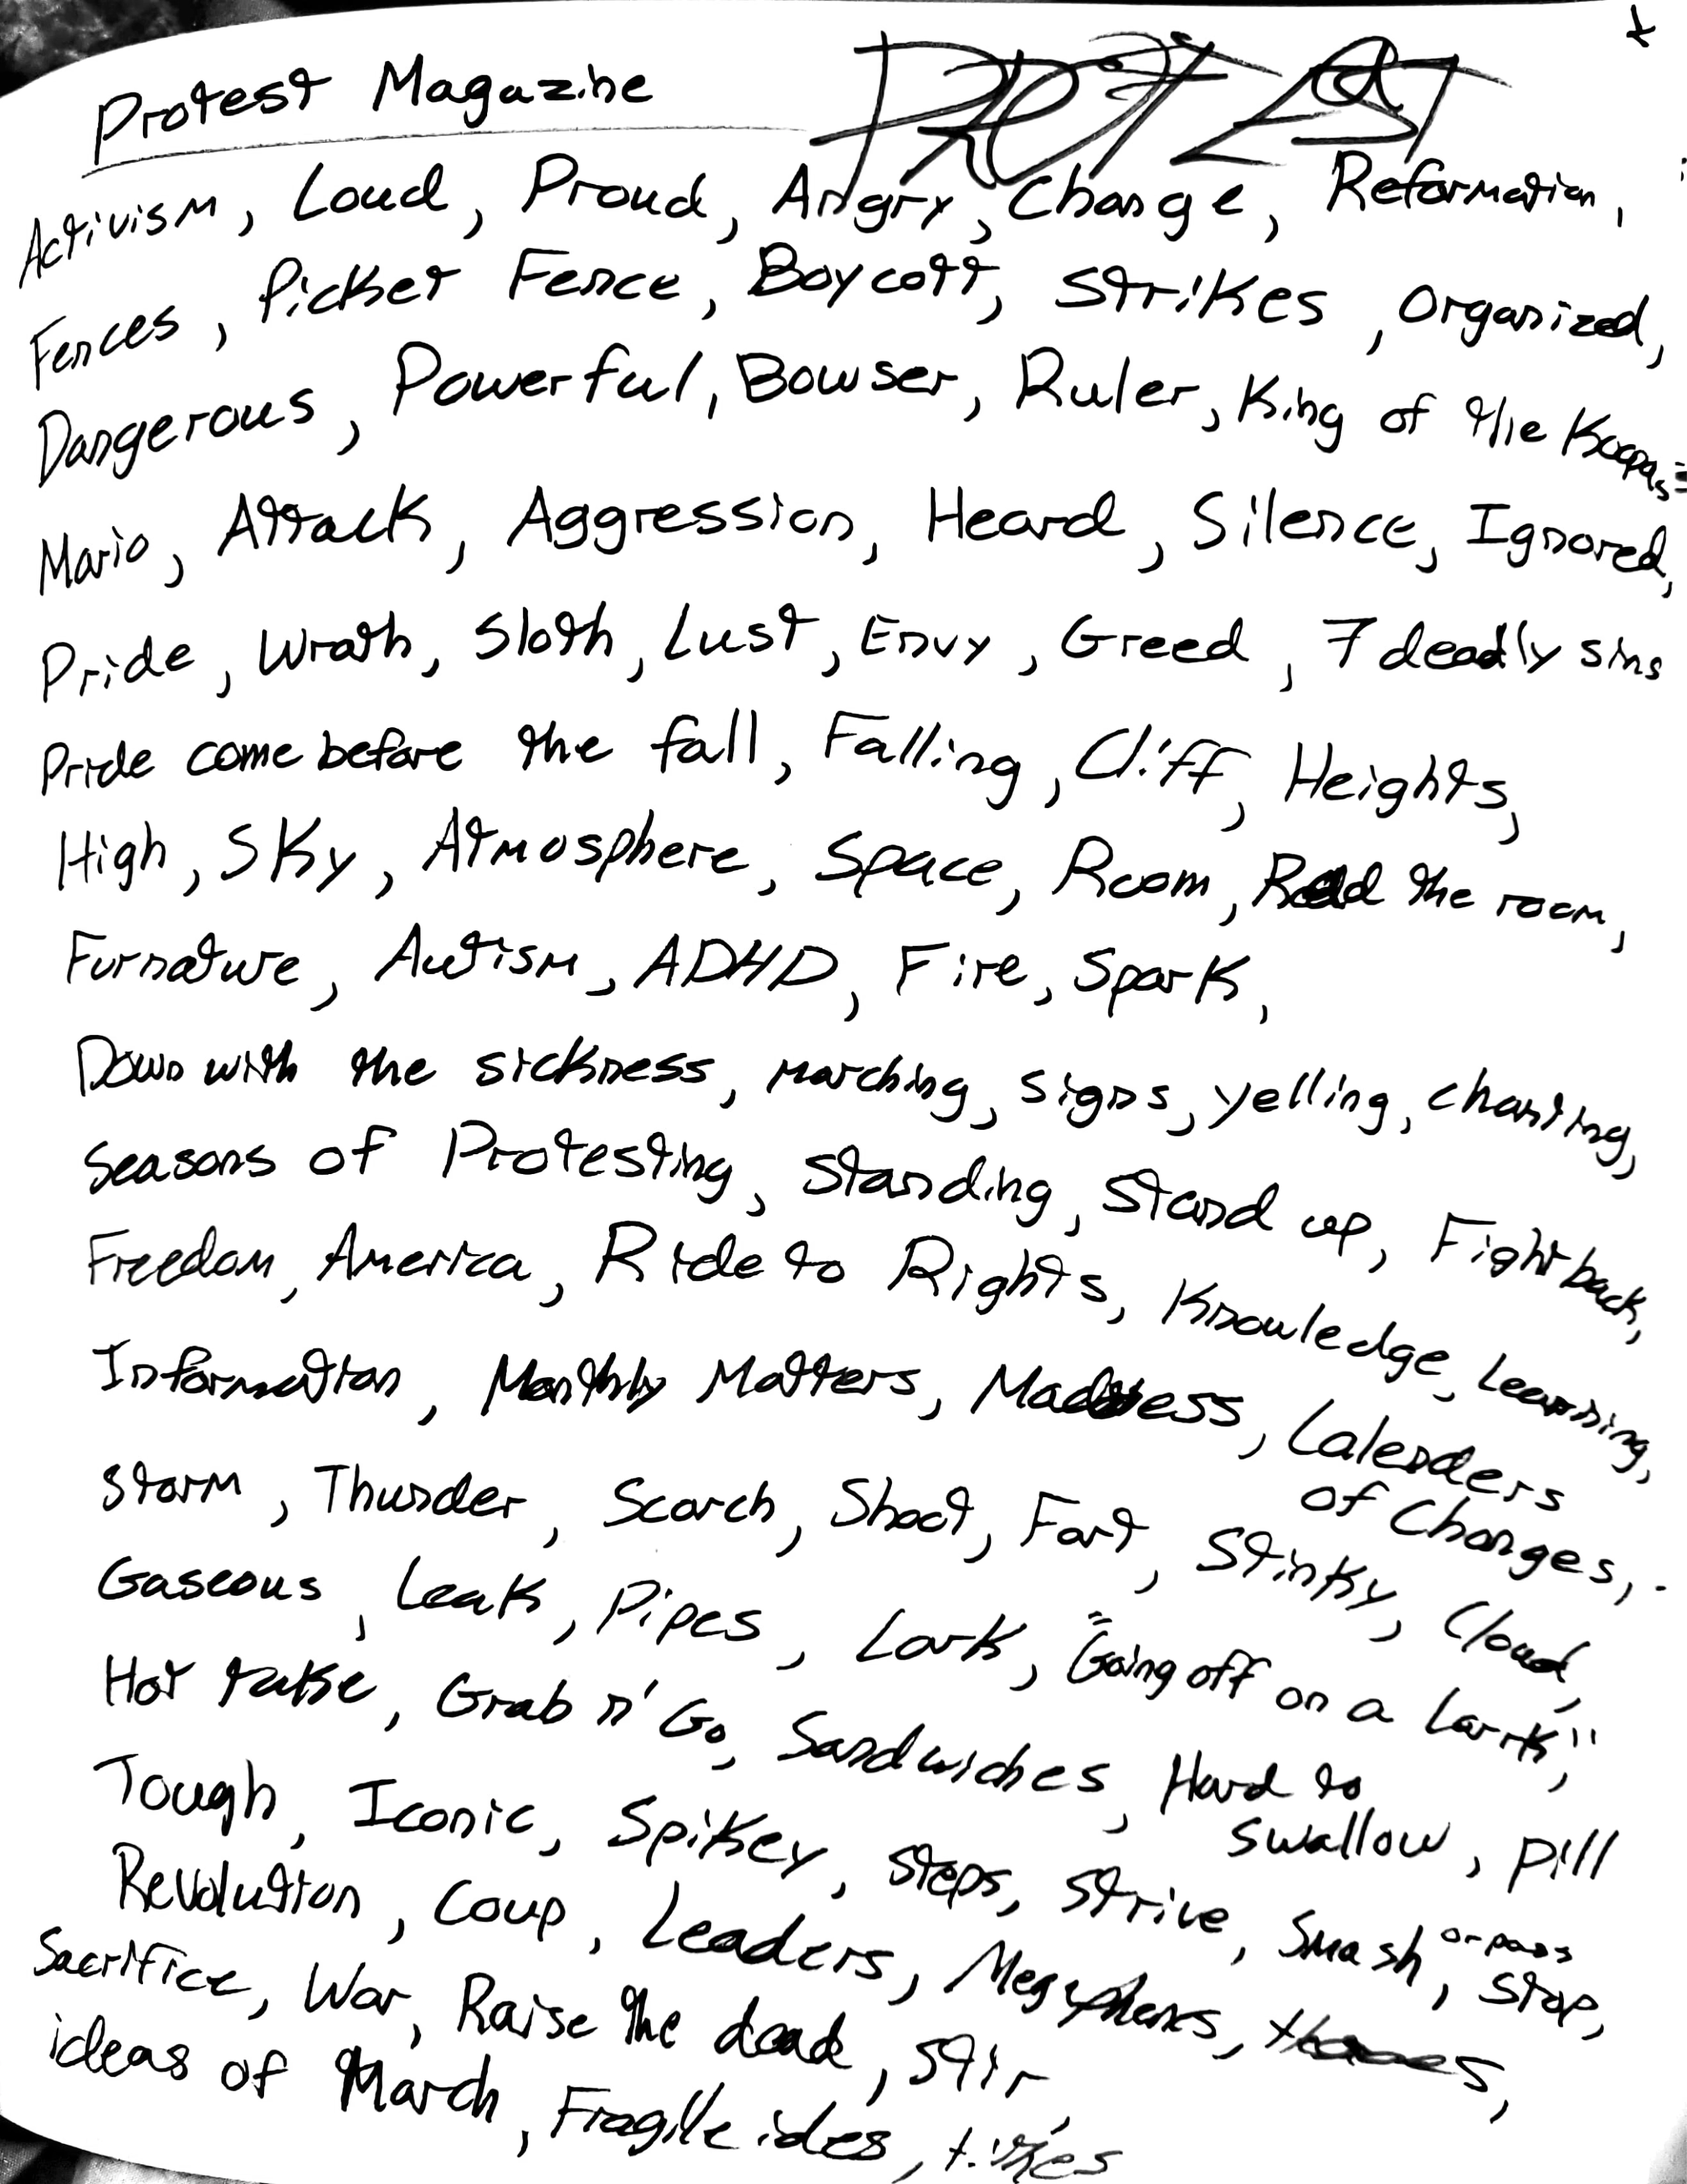 Protest Magazine PROTEST
Activism, Loud, Proud, Angry, Change, Reformation,
Fences, Picket Fence, Boycott, Strikes, Organized,
Dangerous, Powerful, Bowser, Ruler, King of the Koopas
Mario, Attack, Aggression, Heard, Silence, Ignored,
Pride, Wrath, Sloth, Lust, Envy, Greed, 7 deadly sins
Pride come before the fall, Falling, Cliff, Heights,
High, Sky, Atmosphere, Space, Room, Read the room,
Furnature, Autism, ADHD, Fire, Spark,
Down with the sickness, marching, signs, yelling, chanting,
Seasons of Protesting, Standing, Stand up, Fight back,
Freedom, America, Ride to Rights, Knowledge, Learning,
Information, Monthly Matters, Madness, Calenders
of Changes,
Storm, Thunder, Scorch, Shoot, Fart, Stinky, Cloud,
Gaseous, Leak, Pipes, Lark, "Going off on a Lark",
Hot take, Grab n' Go, Sandwiches, Hard to
swallow, pill
Tough, Iconic, Spikey, Steps, Strive, Smash or pass, stop,
Revolution, Coup, Leaders, Megaphones,
Sacrifice, War, Raise the dead, Stir,
ideas of March, Fragile ides,